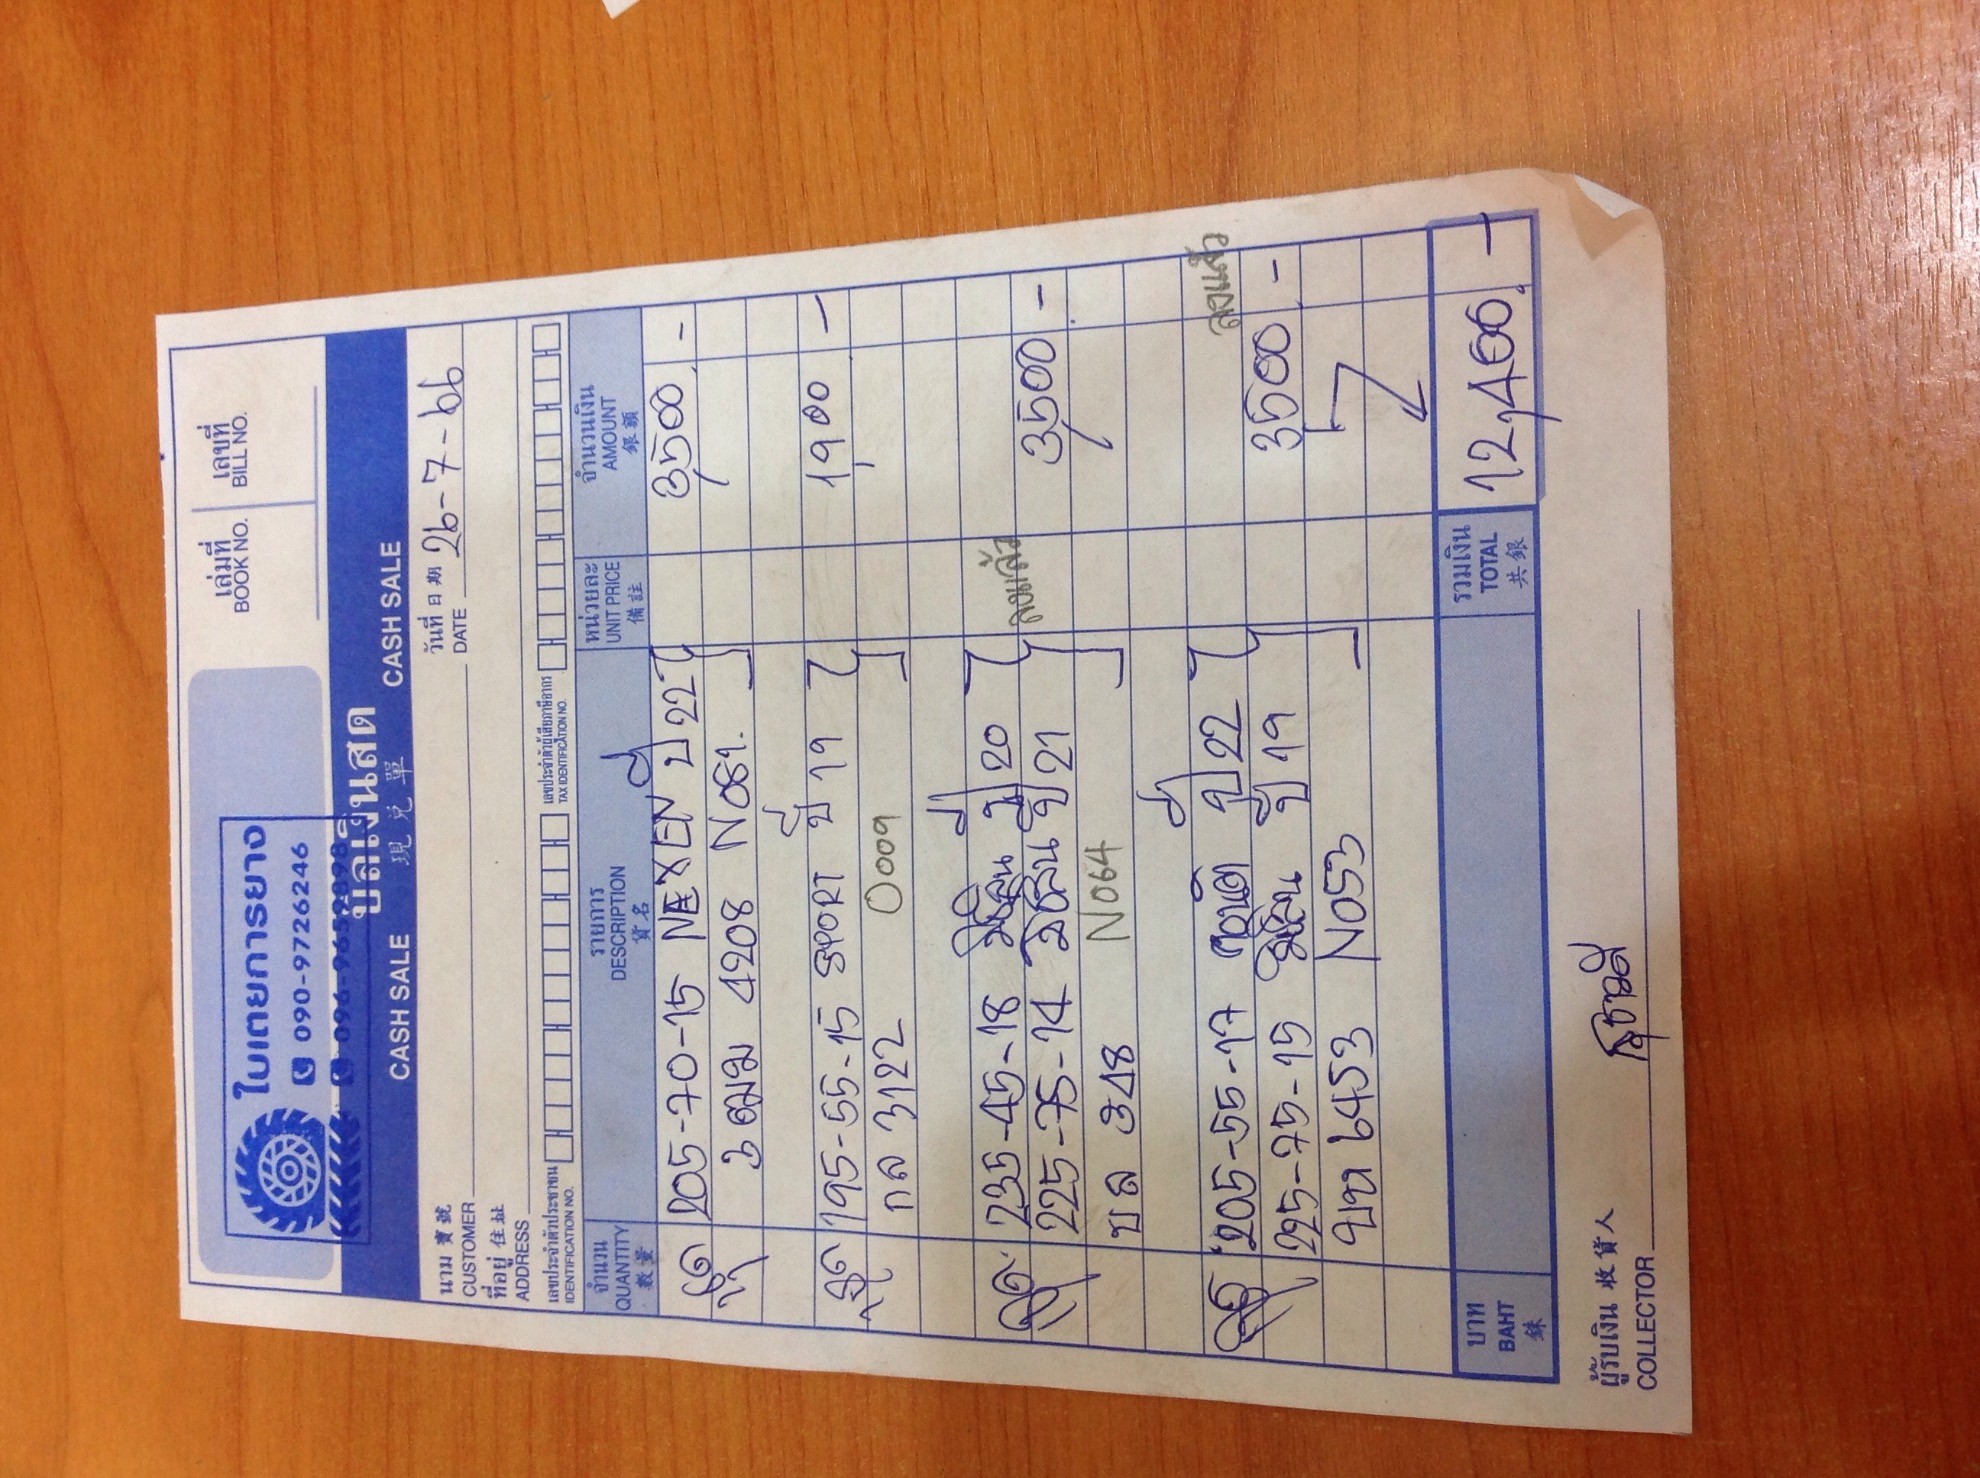 เล่มที่ เลขที่
BOOK NO. BILL NO.
ใบเตยการยาง
090-9726246
096-9652898
บิลเงินสด
CASH SALE 現兌單 CASH SALE
วันที่ 日期 26-7-66
DATE
นาม 賣號
CUSTOMER
ที่อยู่ 住址
ADDRESS
เลขประจำตัวประชาชน เลขประจำตัวผู้เสียภาษีอากร
IDENTIFICATION NO. TAX IDENTIFICATION NO.
จำนวน รายการ หน่วยละ จำนวนเงิน
QUANTITY DESCRIPTION UNIT PRICE AMOUNT
數量 貨名 備註 銀額
205-70-15 NEXEN ปี 22 3,500 -
3 ฒม 4208 N081.
195-55-15 SPORT ปี 19 1,900 -
กล 3122 0009
ลงแล้ว
235-45-18 มิชลิน ปี 20 3,500 -
225-75-14 มิชลิน ปี 21
บล 848 N064
ลงแล้ว
205-55-17 ปี 22 3500 -
225-75-15 มิชลิน ปี 19
บท 6453 N053
บาท รวมเงิน 12,400.-
BAHT TOTAL
銖 共銀
ผู้รับเงิน 收貨人
COLLECTOR